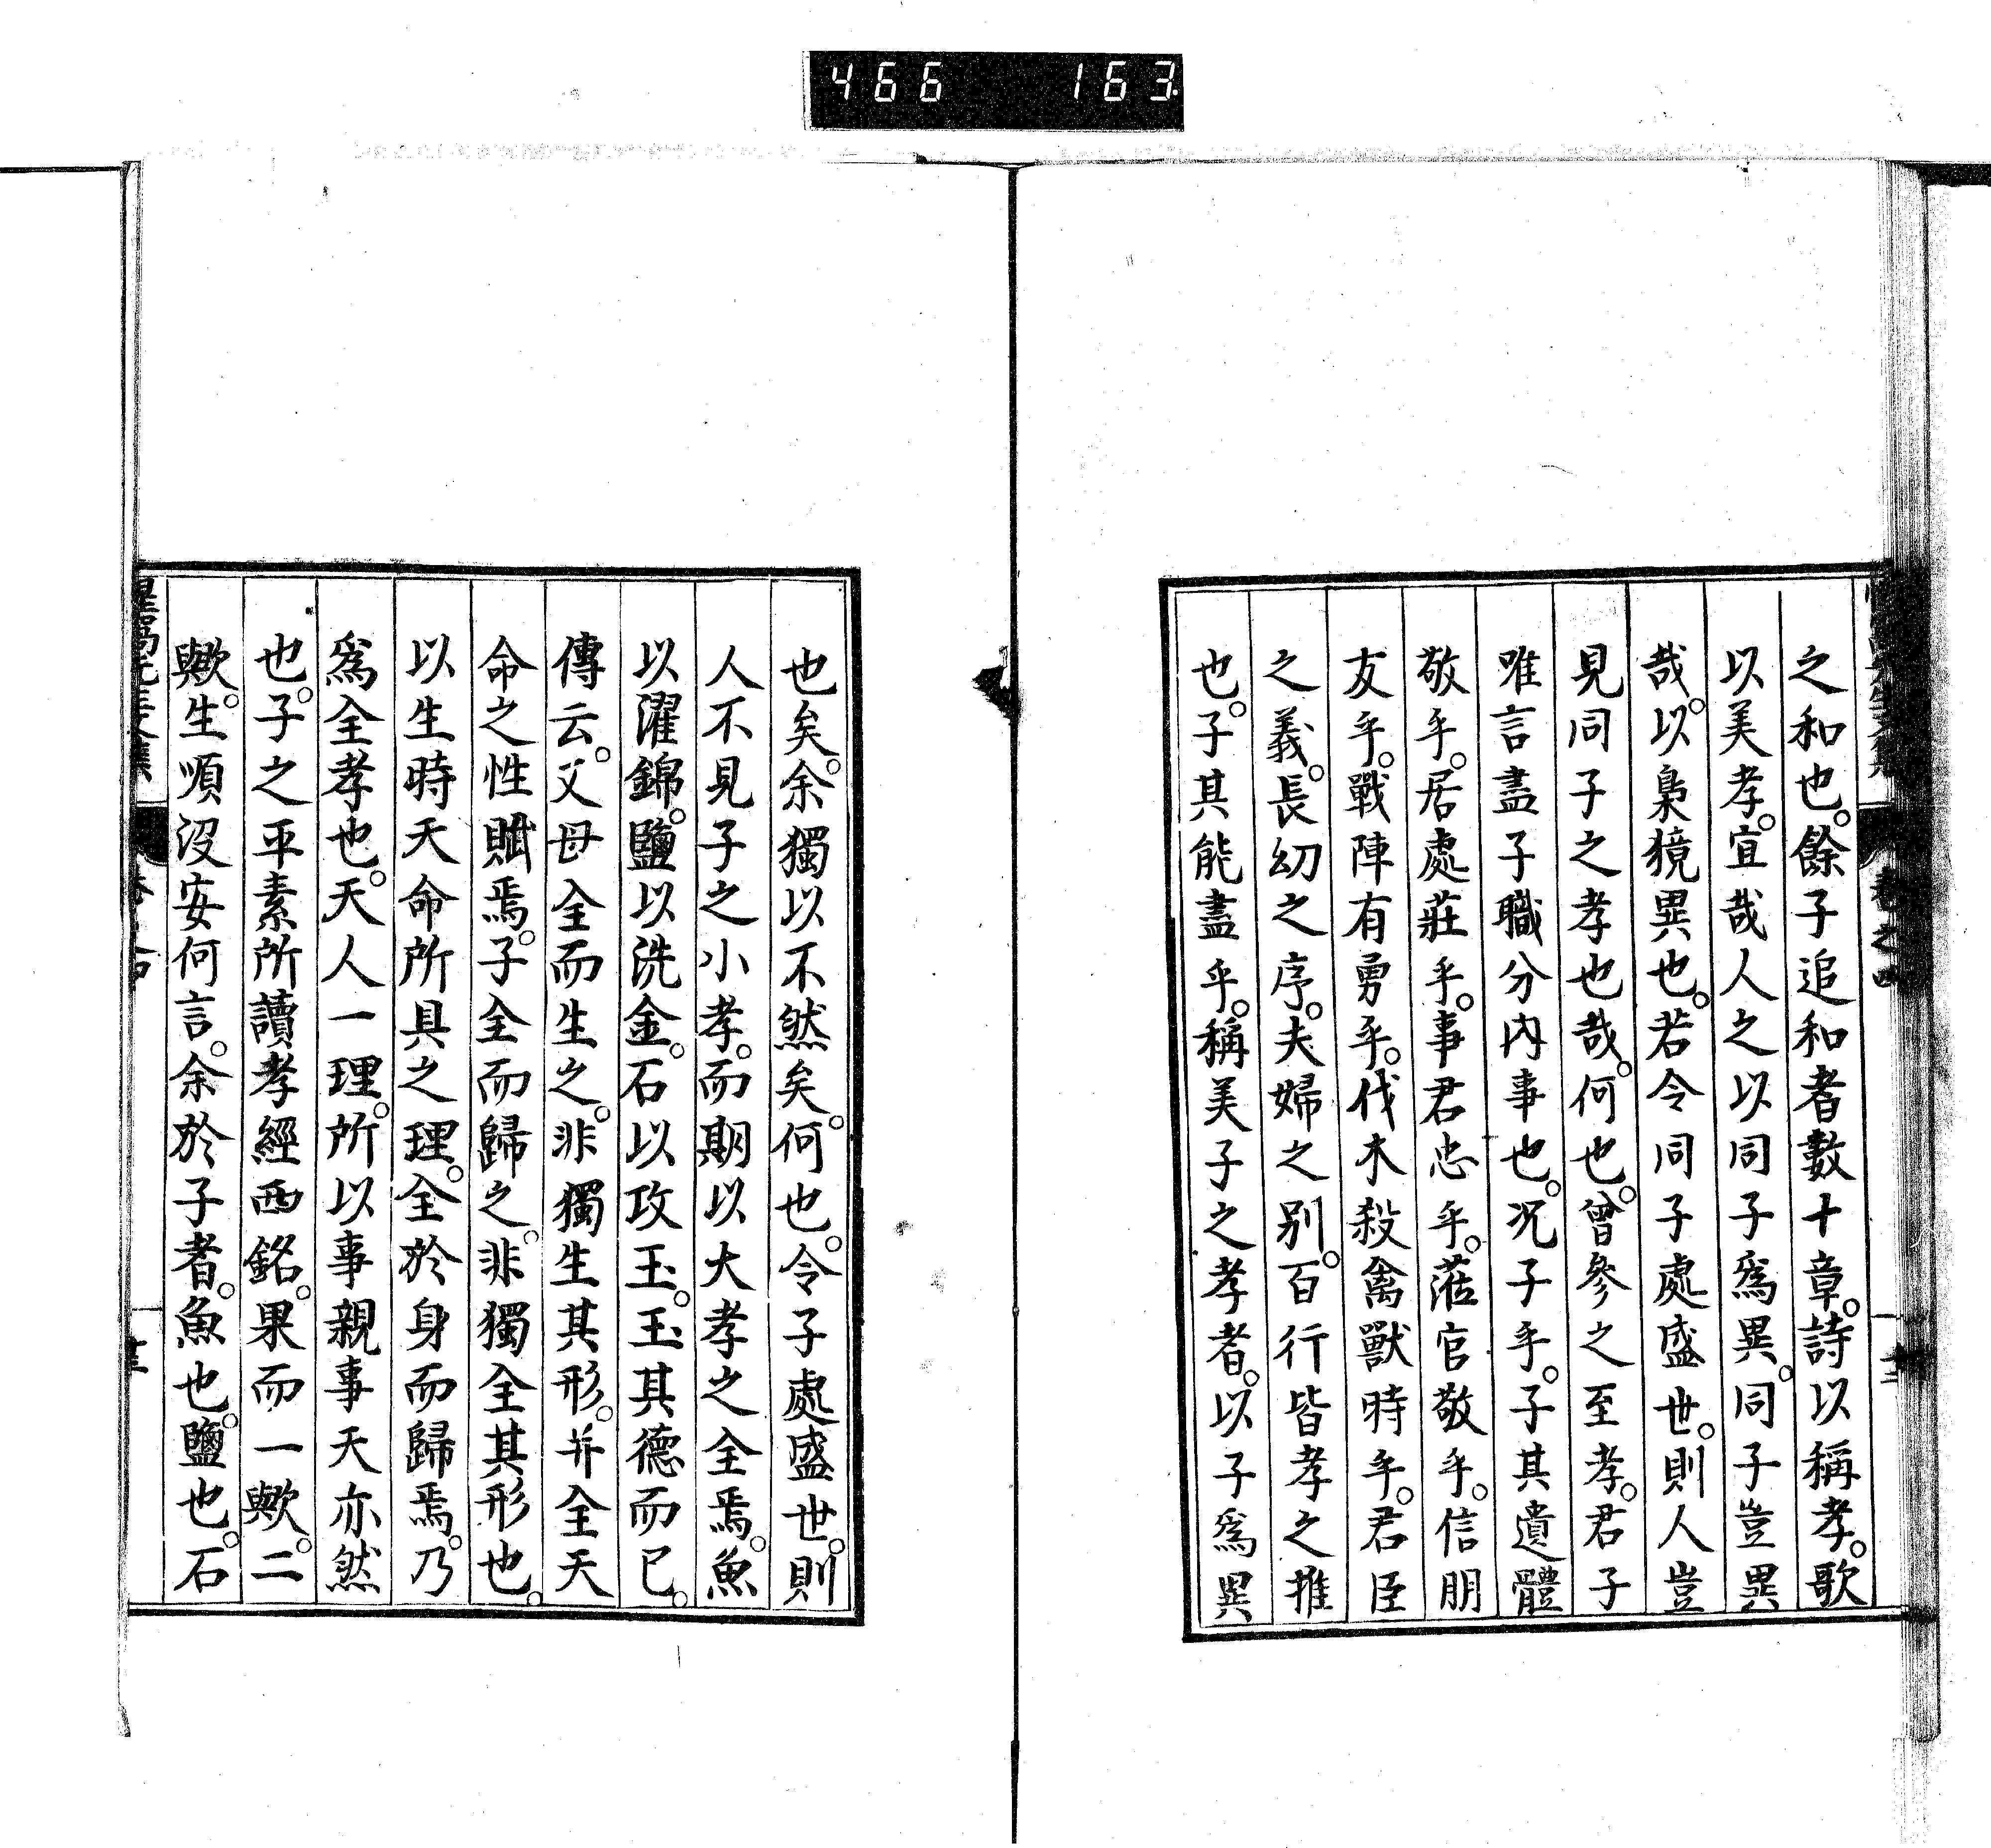 466 163.
之和也。餘子追和者數十章。詩以稱孝。歌
以美孝。宜哉人之以同子爲異。同子豈異
哉。以梟獍異也。若令同子處盛世。則人豈
見同子之孝也哉。何也。曾參之至孝。君子
唯言盡子職分內事也。况子乎。子其遺體
敬乎。居處莊乎。事君忠乎。蒞官敬乎。信朋
友乎。戰陣有勇乎。伐木殺禽獸時乎。君臣
之義。長幼之序。夫婦之别。百行皆孝之推
也。子其能盡乎。稱美子之孝者。以子爲異
也矣。余獨以不然矣。何也。令子處盛世。則
人不見子之小孝。而期以大孝之全焉。魚
以濯錦。鹽以洗金。石以攻玉。玉其德而已。
傳云。父母全而生之。非獨生其形。并全天
命之性賦焉。子全而歸之。非獨全其形也。
以生時天命所具之理。全於身而歸焉。乃
爲全孝也。天人一理。所以事親事天亦然
也。子之平素所讀孝經西銘。果而一歟。二
歟。生順沒安何言。余於子者。魚也。鹽也。石